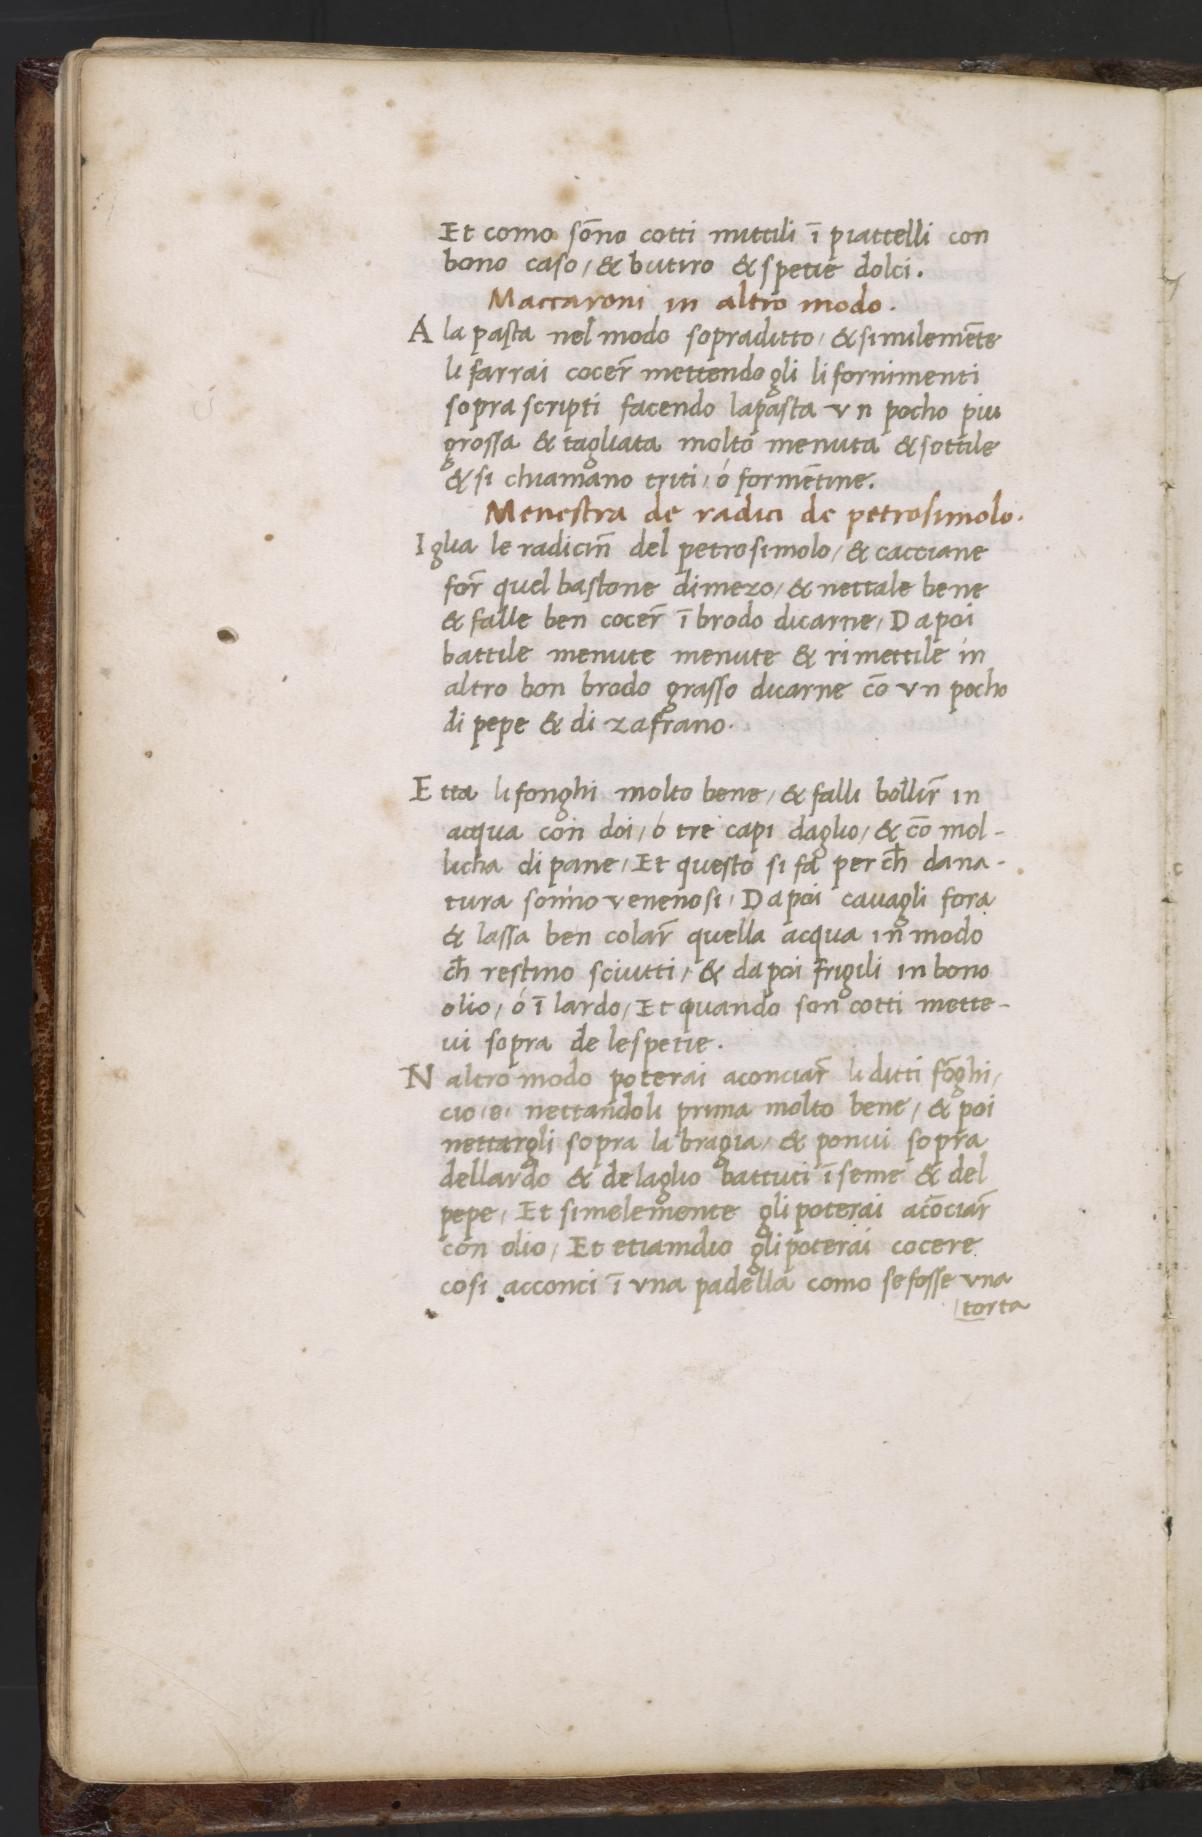 Et como sõno cotti mittili ĩ piattelli con
bono caso / & butiro & spetie dolci .
Maccaroni in altro modo .
A la pasta nel modo sopraditto / & similemẽte
li farrai cocer̃ mettendo gli li fornimenti
sopra scripti facendo la pasta vn pocho piu
grossa & tagliata molto menuta & sottile
& si chiamano triti / ó formẽtine .
Menestra de radici de petrosimolo .
I glia le radicin̄ del petrosimolo / & cacciane
for̃ quel bastone di mezo / & nettale bene
& falle ben cocer̃ ĩ brodo dicarne / Da poi
battile menute menute & rimettile in
altro bon brodo grasso dicarne cõ vn pocho
di pepe & di zafrano .
E tta li fonghi molto bene / & falli bollir̃ in
acqua con doi / ó tre capi daglio / & cõ mol-
licha di pane / Et questo si fa per ch̃ da na-
tura sonno venenosi / Da poi cavagli fora
& lassa ben colar̃ quella acqua in modo
ch̃ restino sciutti / & da poi frigili in bono
olio / ó ĩ lardo / Et quando son cotti mette-
vi sopra de le spetie .
N altro modo poterai aconciar̃ li ditti fõghi /
cio e / nettandoli prima molto bene / & poi
nettargli sopra la bragia / & ponvi sopra
dellardo & de laglio battuti ĩseme & del
pepe / Et simelemente gli poterai acõciar̃
con olio / Et etiamdio gli poterai cocere
cosi acconci ĩ vna padella como se fosse vna
torta